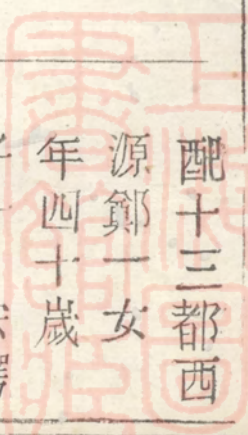 配十三都西
源鄭一女
年四十歲